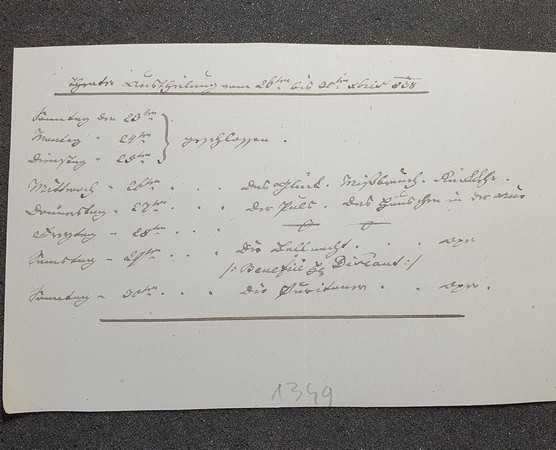 Theater Austheilung vom 26ten bis 30ten Xbris 838
Sonntag den 23ten
Montag " 24ten } geschlossen.
Dienstag " 25ten
Mittwoch - 26ten . . . Das Glück. Mißbrauch. Rückkehr.
Donnerstag - 27ten . . . Der Puls. Das Häuschen in der Aue
Freytag - 28ten . . .
Samstag - 29ten . . . Die Ballnacht . . Oper
/: Benefice Discant :/
Sonntag - 30ten . . . Die Puritaner . . Oper.
1349